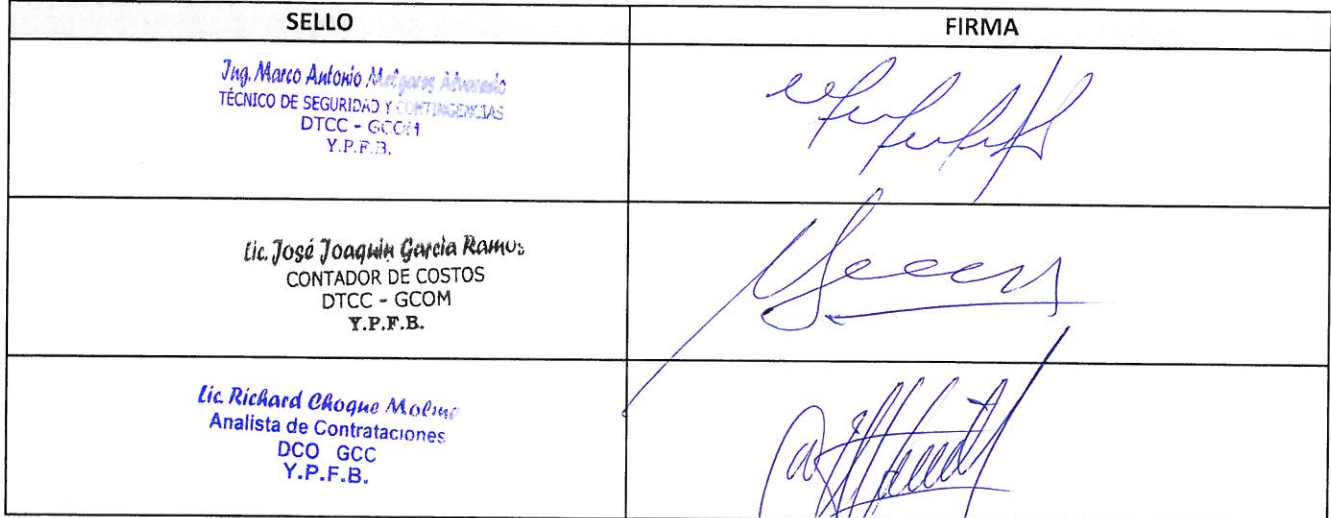 SELLO
FIRMA
Ing. Marco Antonio Melgares Alvarado
TÉCNICO DE SEGURIDAD Y CONTINGENCIAS
DTCC - GCOM
Y.P.F.B.
Lic. José Joaquin Garcia Ramos
CONTADOR DE COSTOS
DTCC - GCOM
Y.P.F.B.
Lic. Richard Choque Molina
Analista de Contrataciones
DCO GCC
Y.P.F.B.